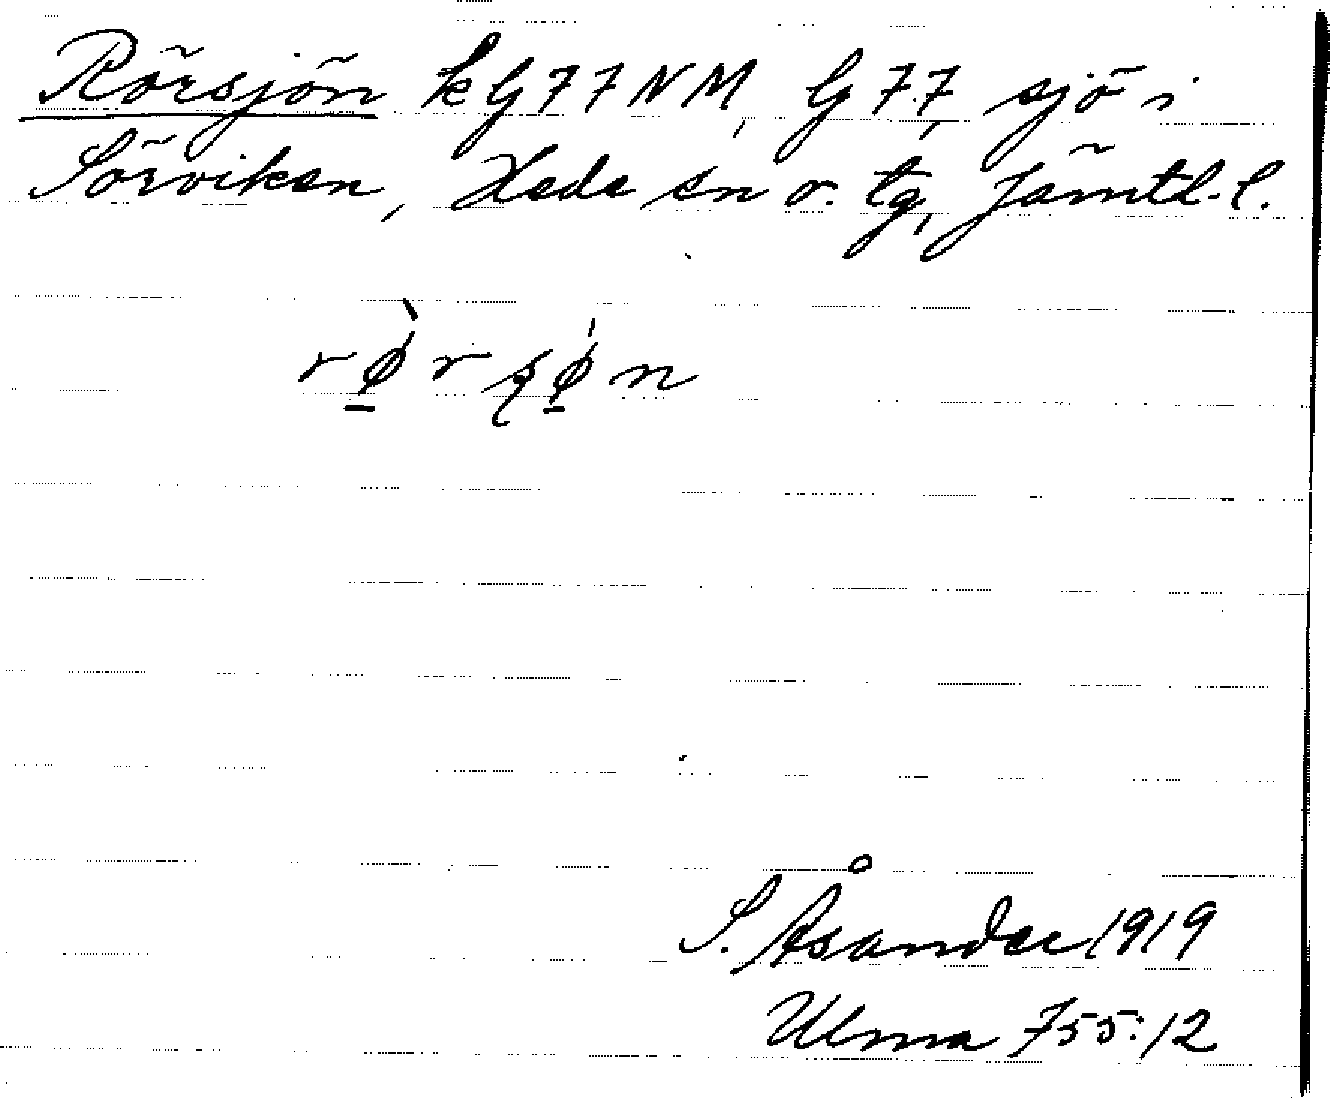 Rörsjön kG77NM, G77, sjö i
Sörviken, Hede sn o. tg, Jämtl. l.
rø̲̀rʂǿ̲n
S. Åsander 1919
Ulma 755:12